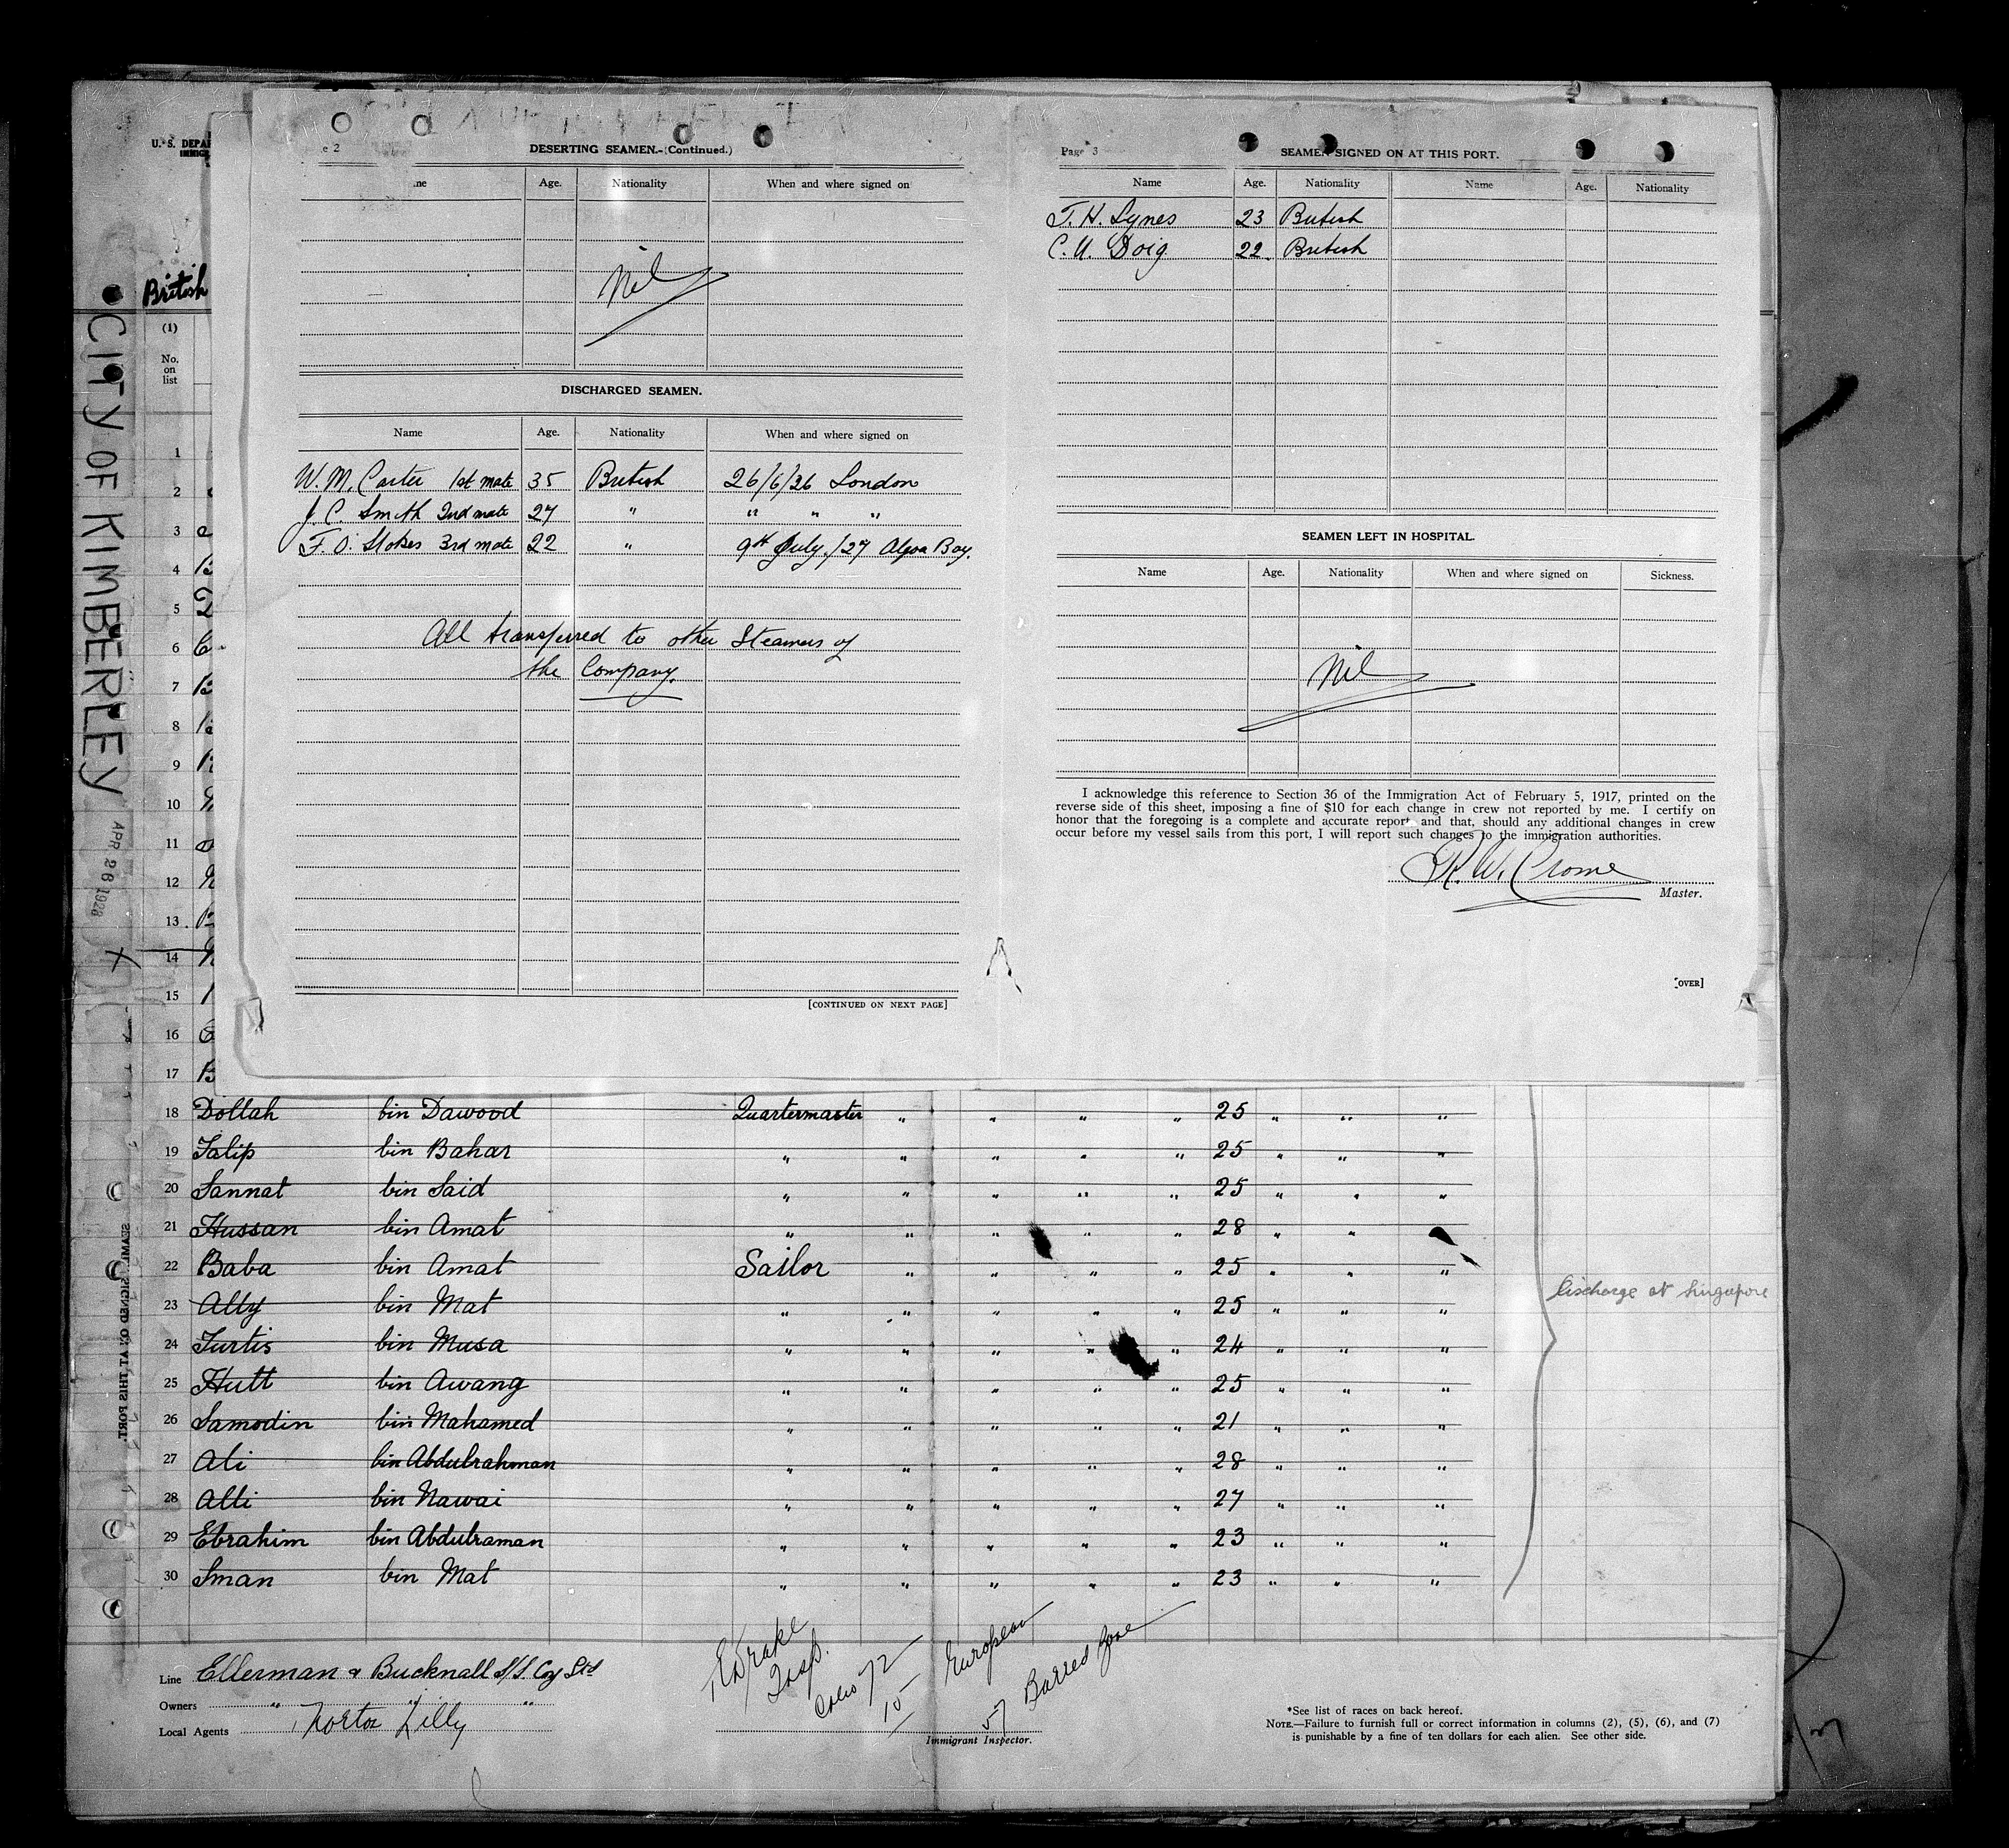 U. S. DEPA
IMMIG
British
(1)
No.
on
list
CITY OF KIMBERLEY
APR 26 1928
X
e 2
DESERTING SEAMEN.-(Continued.)
me Age. Nationality When and where signed on
Nil
DISCHARGED SEAMEN.
Name Age. Nationality When and where signed on
W. M. Carter 1st mate 35 British 26/6/26 London
J. C. Smith 2nd mate 27 " " " "
F. O. Stokes 3rd mate 22 " 9th July /27 Algoa Bay.
All transferred to other Steamers of
the Company.
[CONTINUED ON NEXT PAGE]
Page 3
SEAMEN SIGNED ON AT THIS PORT.
Name Age. Nationality Name Age. Nationality
T. H. Lynes 23 British
C. U. Doig 22 British
SEAMEN LEFT IN HOSPITAL.
Name Age. Nationality When and where signed on Sickness.
Nil
I acknowledge this reference to Section 36 of the Immigration Act of February 5, 1917, printed on the
reverse side of this sheet, imposing a fine of $10 for each change in crew not reported by me. I certify on
honor that the foregoing is a complete and accurate report and that, should any additional changes in crew
occur before my vessel sails from this port, I will report such changes to the immigration authorities.
R. W. Crome
Master.
[OVER]
1
2
3
4
5
6
7
8
9
10
11
12
13
14
15
16
17
18 Dollah bin Dawood Quartermaster " " " " 25 " " "
19 Salip bin Bahar " " " " " 25 " " "
20 Sannat bin Said " " " " " 25 " " "
21 Hussan bin Amat " " " " " 28 " "
22 Baba bin Amat Sailor " " " " 25 " " "
23 Ally bin Mat " " " " " 25 " " "
24 Turtis bin Musa " " " " " 24 " " "
25 Hutt bin Awang " " " " " 25 " " "
26 Samodin bin Mahamed " " " " " 21 " " "
27 Ali bin Abdulrahman " " " " " 28 " " "
28 Alli bin Nawai " " " " " 27 " " "
29 Ebrahim bin Abdulraman " " " " " 23 " " "
30 Sman bin Mat " " " " " 23 " " "
Discharge at Singapore
SEAMEN SIGNED ON AT THIS PORT.
Line Ellerman & Bucknall S/S. Coy Ltd
Owners " " "
Local Agents Norton Lilly
Drake
Insp.
72
15 European
57 Barred Zone
Immigrant Inspector.
*See list of races on back hereof.
NOTE.—Failure to furnish full or correct information in columns (2), (5), (6), and (7)
is punishable by a fine of ten dollars for each alien. See other side.